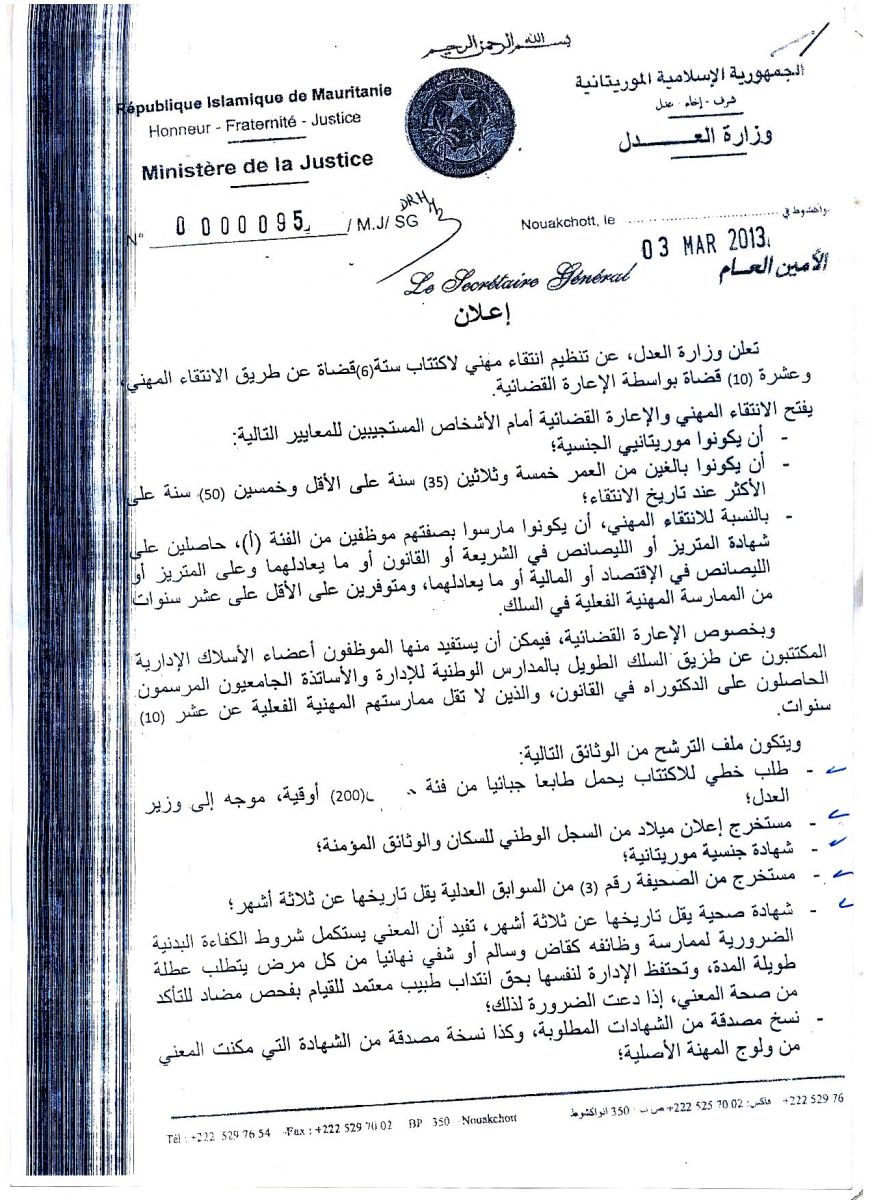 بسم الله الرحمن الرحيم
République Islamique de Mauritanie
Honneur - Fraternité - Justice
Ministère de la Justice
الجمهورية الإسلامية الموريتانية
شرف - إخاء - عدل
وزارة العــــدل
N° 0 000095 / M.J/ SG
DRH
Nouakchott, le 03 MAR 2013 انواكشوط في
Le Secrétaire Général
الأمين العـام
إعـلان
تعلن وزارة العدل، عن تنظيم انتقاء مهني لاكتتاب ستة(6)قضاة عن طريق الانتقاء المهني،
وعشرة (10) قضاة بواسطة الإعارة القضائية.
يفتح الانتقاء المهني والإعارة القضائية أمام الأشخاص المستجيبين للمعايير التالية:
- أن يكونوا موريتانيي الجنسية؛
- أن يكونوا بالغين من العمر خمسة وثلاثين (35) سنة على الأقل وخمسين (50) سنة على
الأكثر عند تاريخ الانتقاء؛
- بالنسبة للانتقاء المهني، أن يكونوا مارسوا بصفتهم موظفين من الفئة (أ)، حاصلين على
شهادة المتريز أو الليصانص في الشريعة أو القانون أو ما يعادلهما وعلى المتريز أو
الليصانص في الإقتصاد أو المالية أو ما يعادلهما، ومتوفرين على الأقل على عشر سنوات
من الممارسة المهنية الفعلية في السلك.
وبخصوص الإعارة القضائية، فيمكن أن يستفيد منها الموظفون أعضاء الأسلاك الإدارية
المكتتبون عن طريق السلك الطويل بالمدارس الوطنية للإدارة والأساتذة الجامعيون المرسمون
الحاصلون على الدكتوراه في القانون، والذين لا تقل ممارستهم المهنية الفعلية عن عشر (10)
سنوات.
ويتكون ملف الترشح من الوثائق التالية:
- طلب خطي للاكتتاب يحمل طابعا جبائيا من فئة (200) أوقية، موجه إلى وزير
العدل؛
- مستخرج إعلان ميلاد من السجل الوطني للسكان والوثائق المؤمنة؛
- شهادة جنسية موريتانية؛
- مستخرج من الصحيفة رقم (3) من السوابق العدلية يقل تاريخها عن ثلاثة أشهر؛
- شهادة صحية يقل تاريخها عن ثلاثة أشهر، تفيد أن المعني يستكمل شروط الكفاءة البدنية
الضرورية لممارسة وظائفه كقاض وسالم أو شفي نهائيا من كل مرض يتطلب عطلة
طويلة المدة، وتحتفظ الإدارة لنفسها بحق انتداب طبيب معتمد للقيام بفحص مضاد للتأكد
من صحة المعني، إذا دعت الضرورة لذلك؛
- نسخ مصدقة من الشهادات المطلوبة، وكذا نسخة مصدقة من الشهادة التي مكنت المعني
من ولوج المهنة الأصلية؛
Tél : +222 529 76 54 Fax : +222 529 70 02 BP 350 Nouakchott
ص ب : 350 انواكشوط فاكس: 02 70 525 222+ +222 529 76